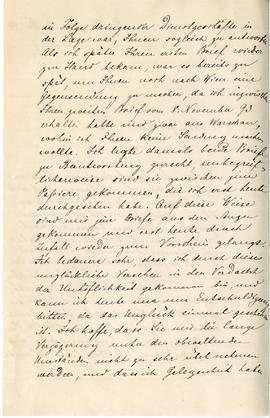 in Folge dringender Dienstgeschäfte in
der Lage war, Ihnen sogleich zu antworten.
Als ich später Ihren ersten Brief wieder
zur Hand bekam, war es bereits zu
spät, um Ihnen noch nach Wien eine
Gegensendung zu machen, da ich inzwischen
Ihren zweiten Brief vom 8. November 93
erhalten hatte und zwar aus Warschau,
wohin ich Ihnen keine Sendung machen
wollte. Ich legte damals beide Briefe
zur Beantwortung zurecht, unbegreif-
licherweise sind sie zwischen jene
Papiere gekommen, die ich erst heute
durchgesehen habe. Auf diese Weise
sind mir jene Briefe aus den Augen
gekommen und erst heute durch
Zufall wieder zum Vorschein gelangt.
Ich bedaure sehr, dass ich durch dieses
unglückliche Versehen in den Verdacht
der Unhöflichkeit gekommen bin, und
kann ich heute nur um Entschuldigung
bitten, da das Unglück einmal geschehen
ist. Ich hoffe, dass Sie mir die lange
Verzögerung unter den obwaltenden
Umständen nicht zu sehr übel nehmen
werden, und dass ich Gelegenheit habe